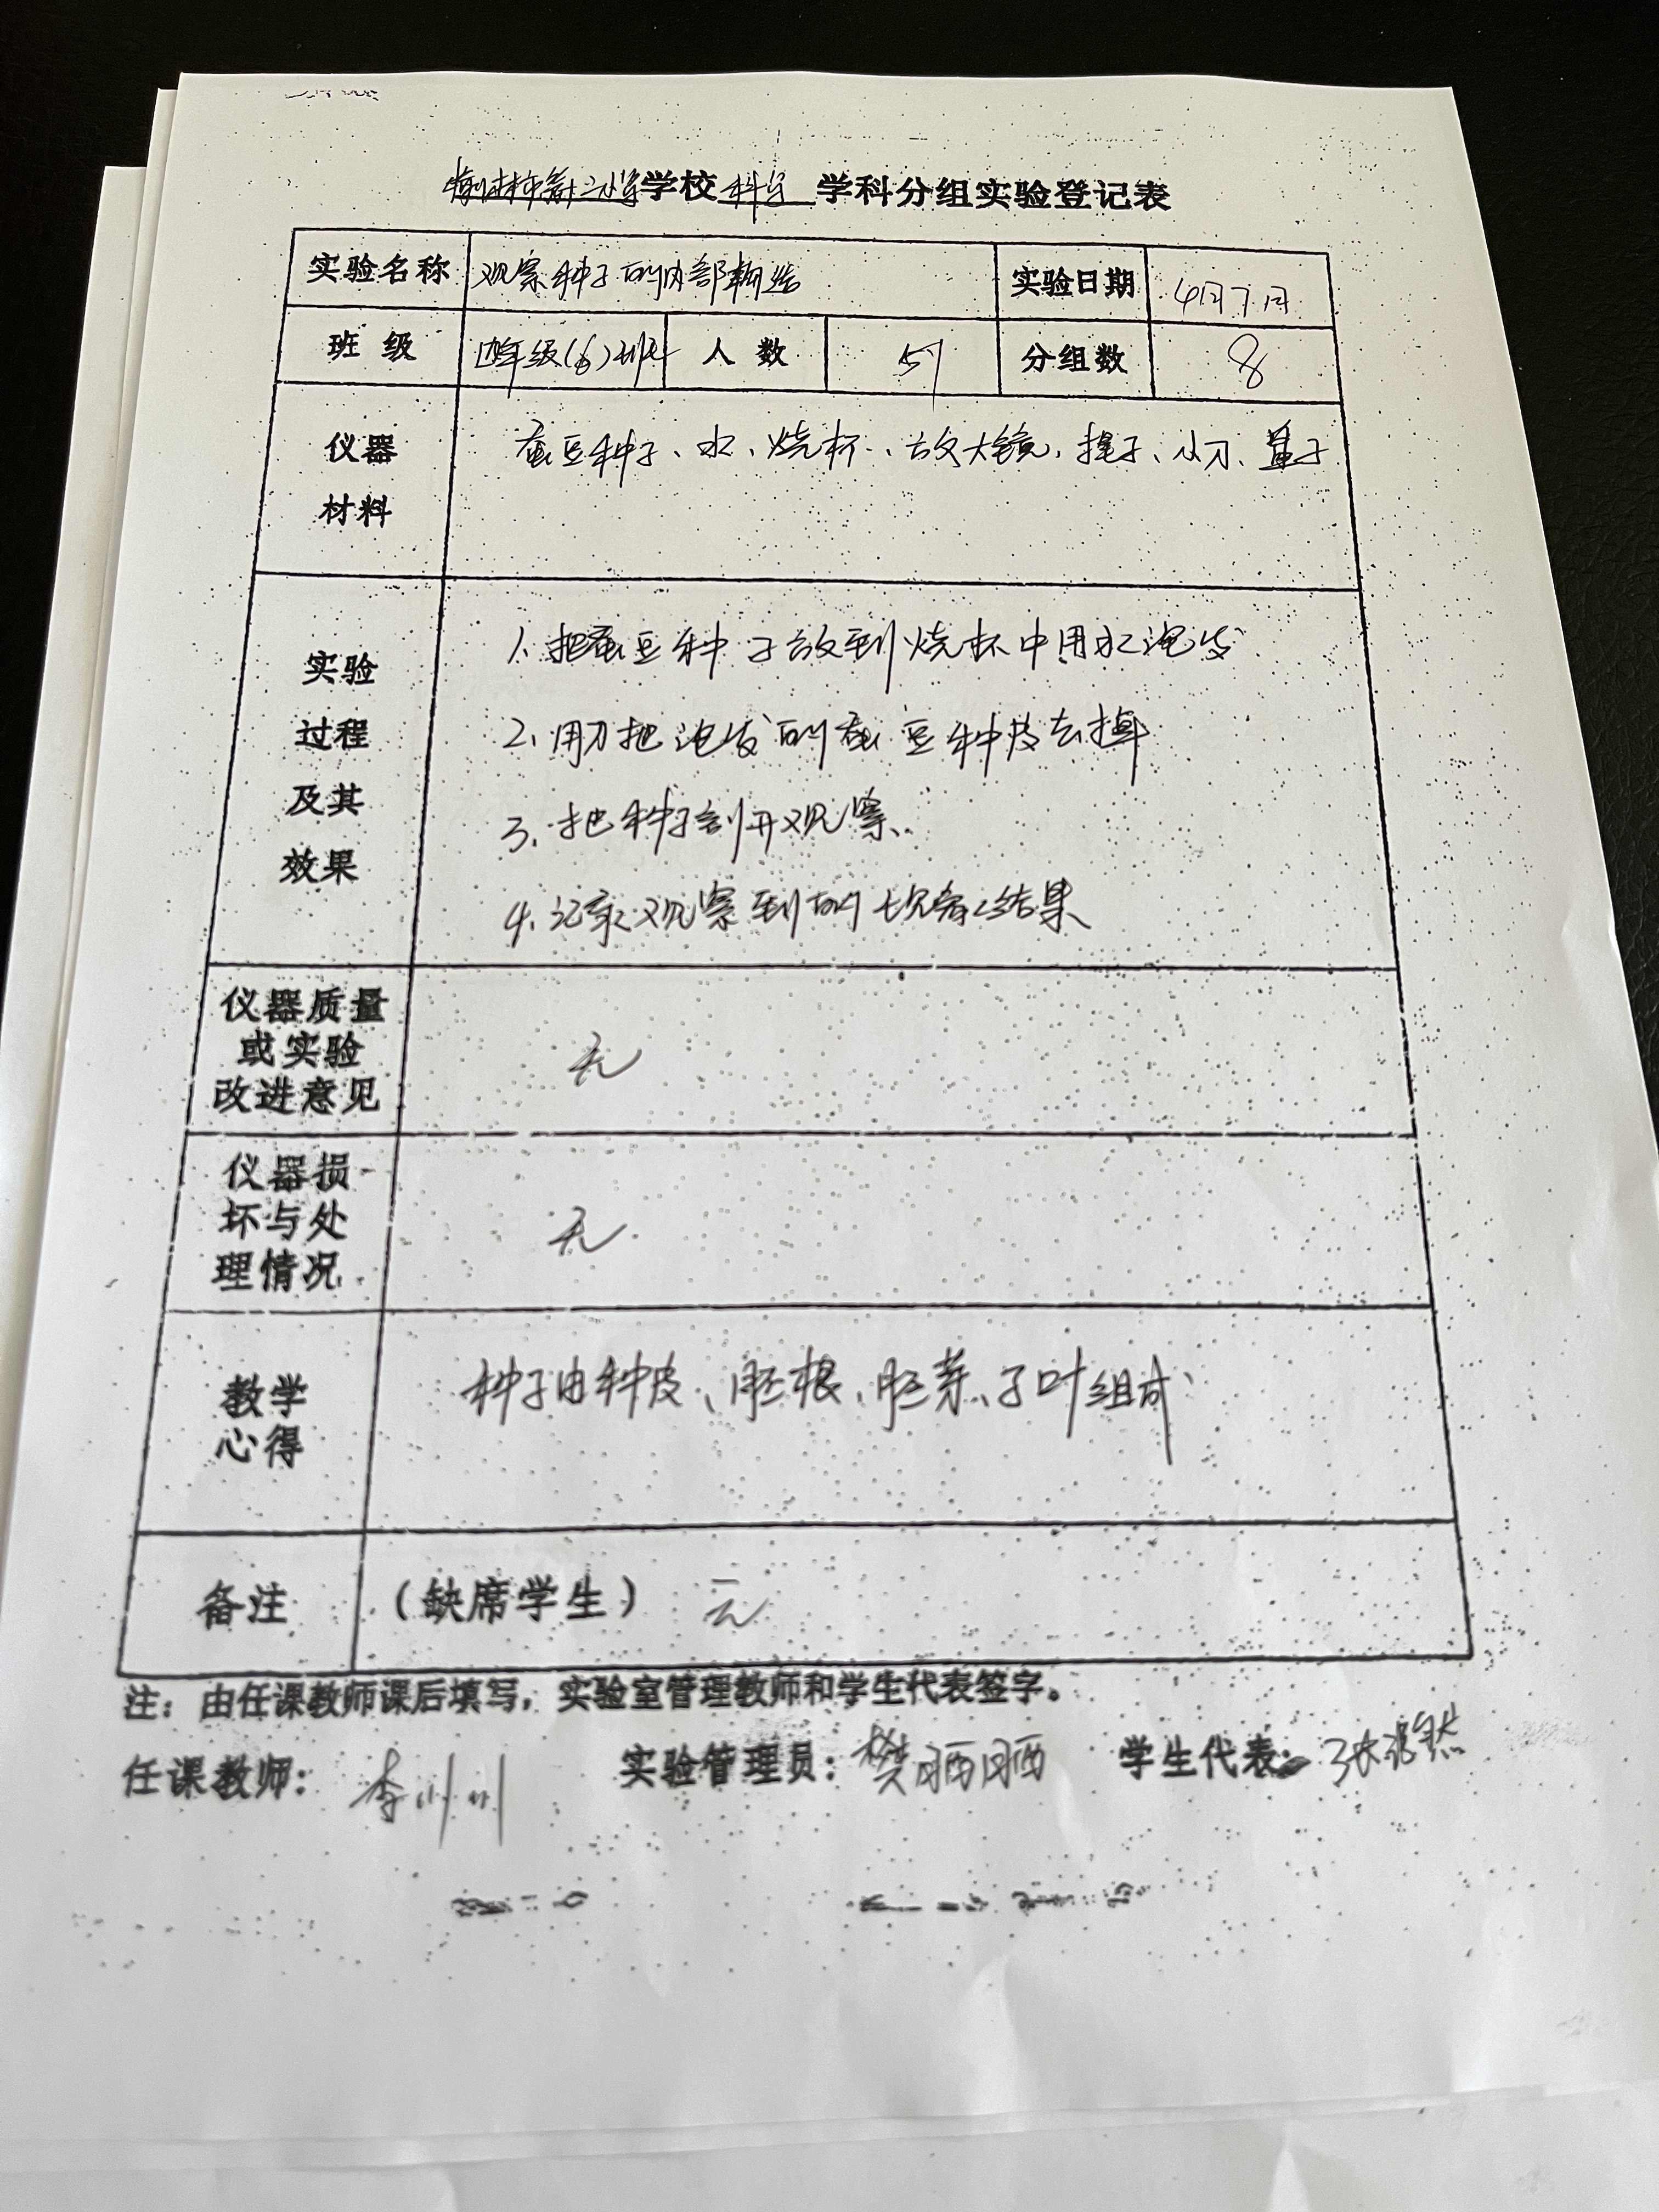 学校 科学 学科分组实验登记表
实验名称 观察种子的内部构造 实验日期 4月7日
班级 四年级(6)班 人数 57 分组数 8
仪器
材料
蚕豆种子、水、烧杯、放大镜、镊子、小刀、盘子
实验
过程
及其
效果
1. 把蚕豆种子放到烧杯中用水泡发
2. 用刀把泡发的蚕豆种皮去掉
3. 把种子剖开观察、
4. 记录观察到的现象结果
仪器质量
或实验
改进意见
无
仪器损
坏与处
理情况
无
教学
心得
种子由种皮、胚根、胚芽、子叶组成
备注 （缺席学生） 无
注：由任课教师课后填写，实验室管理教师和学生代表签字。
任课教师： 李川川 实验管理员：樊晒晒 学生代表：